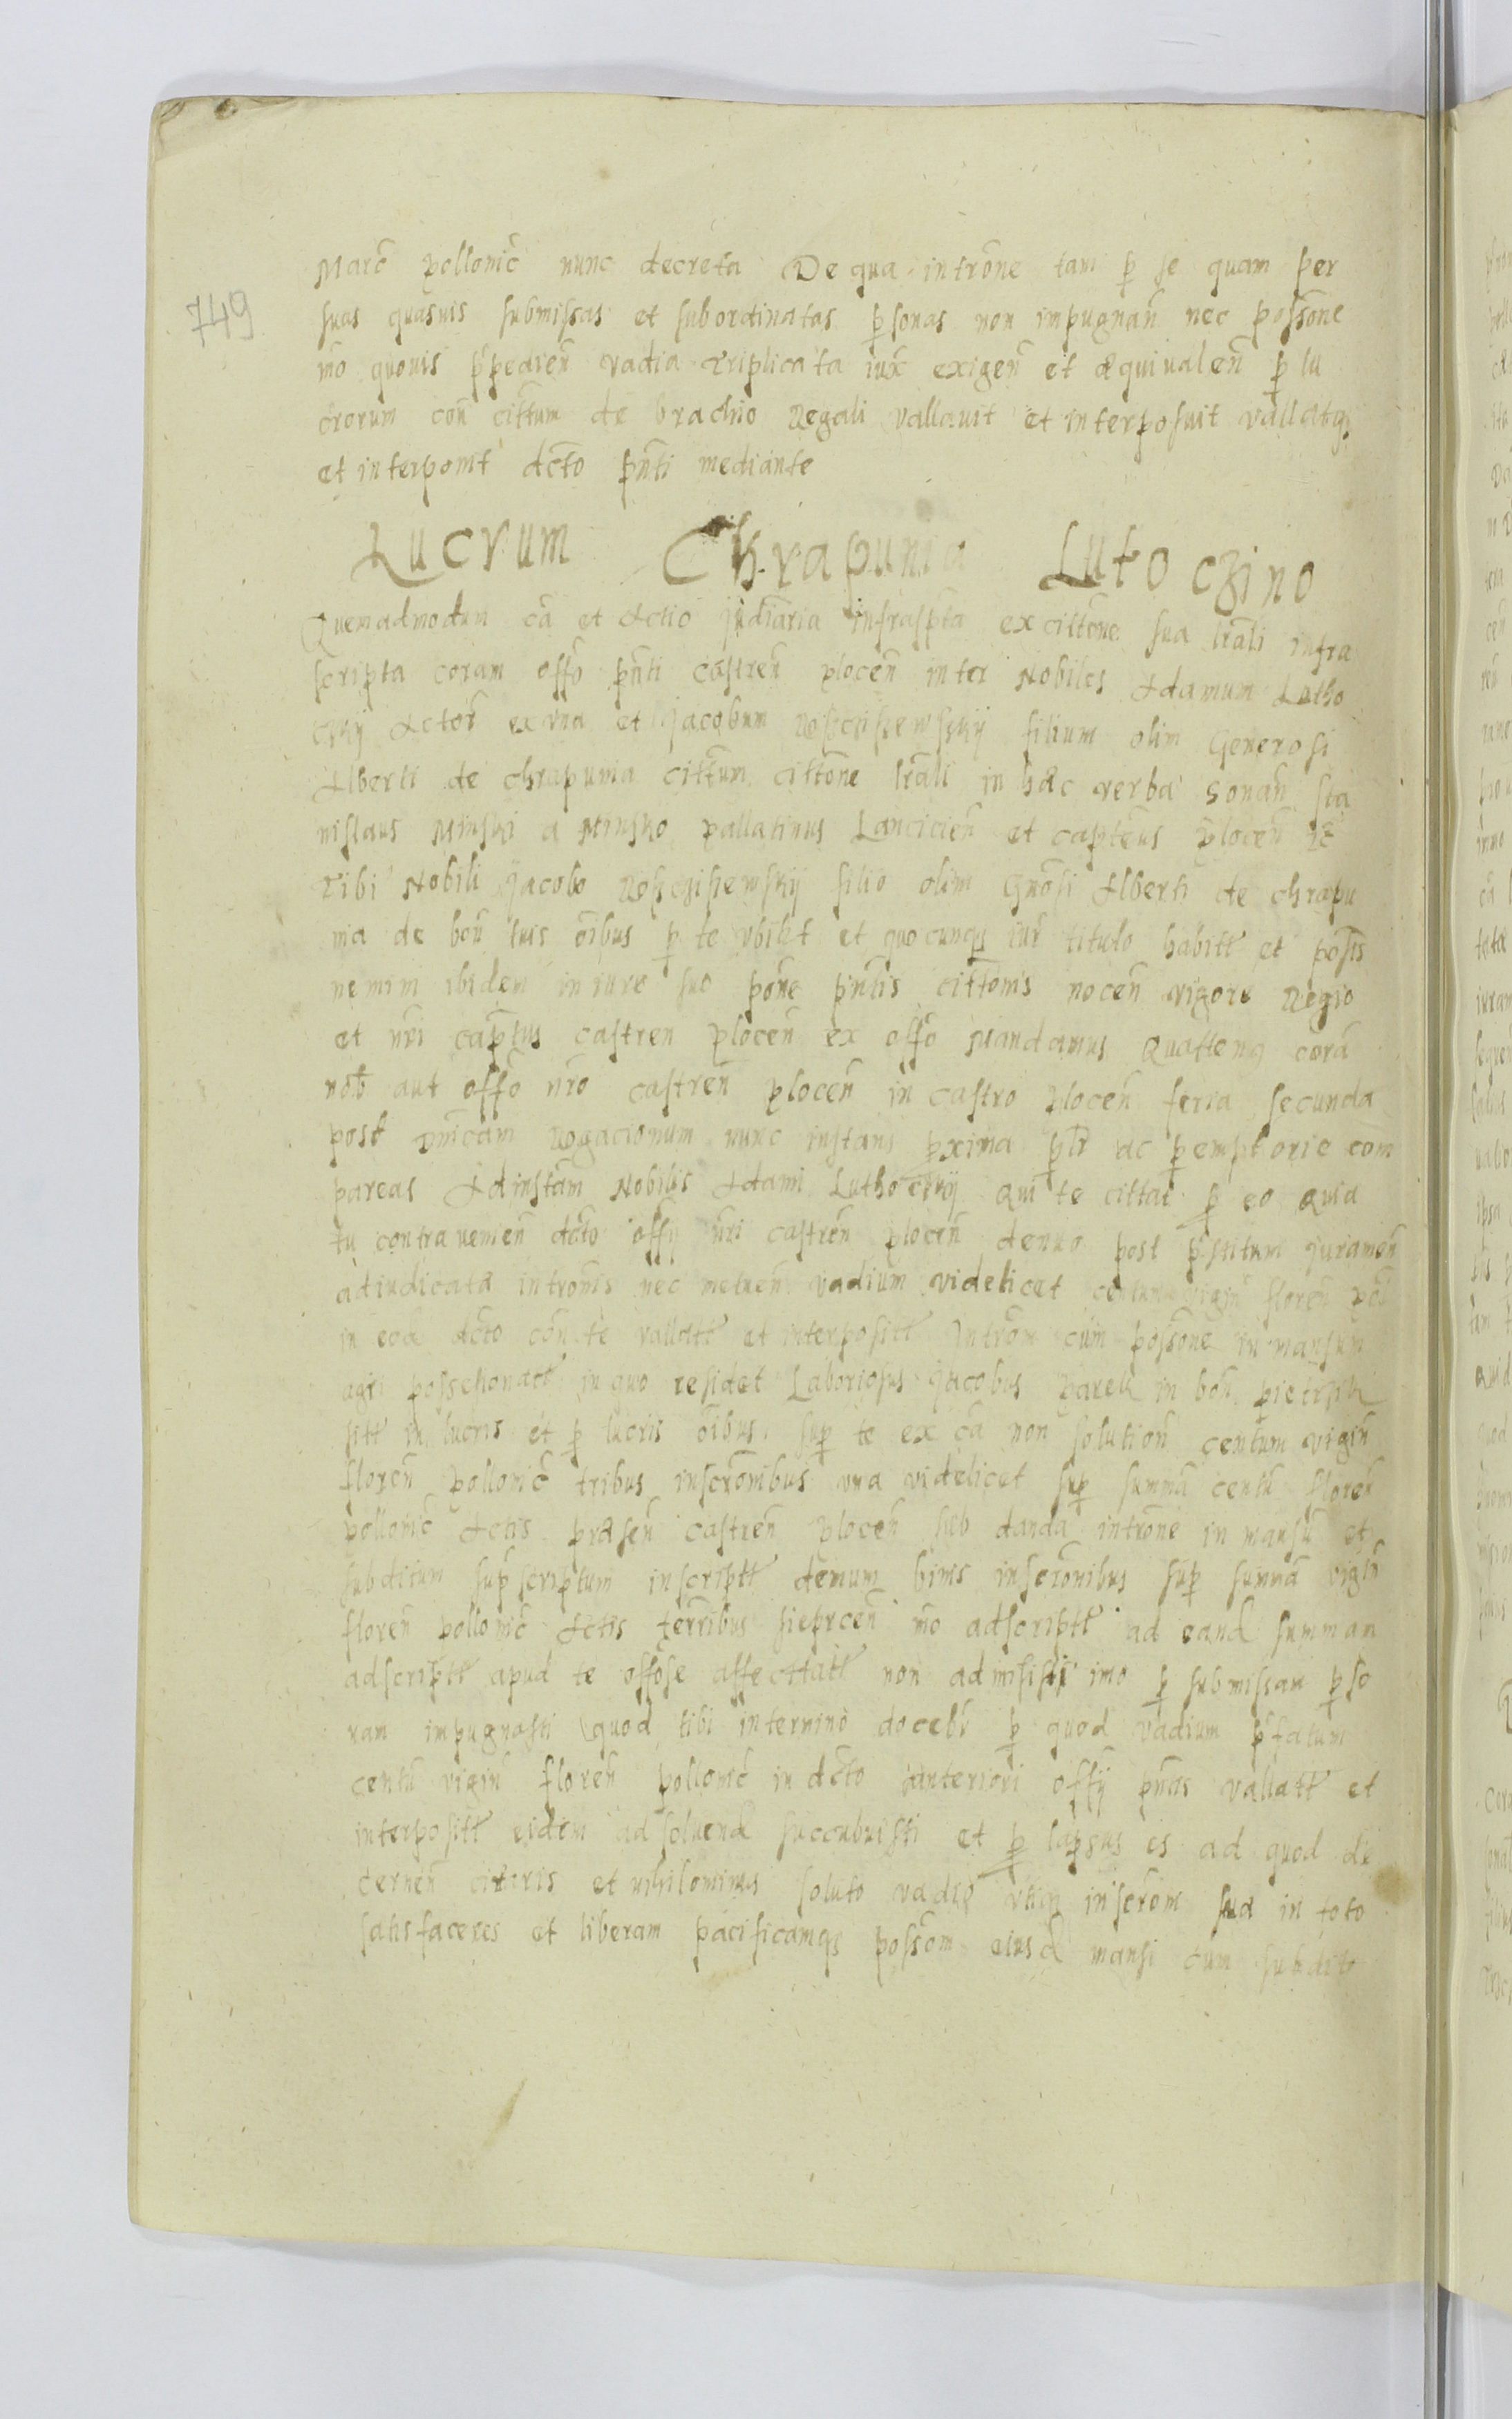 Marc̃ pollonic̃ nunc decreta De qua introne tam ꝑ se quam per
749
suas quasuis submissas et subordinatas ꝑsonas non impugnan̄ nec possone
mo quouis p̄pedien̄ vadia triplicata iux̄ exigen̄ et æquiualen̄ ꝑ lu
crorum con̄ cittum de brachio Regali vallauit et interposuit vallatqꝫ
et interponit dcto pn̄ti mediante
Lucrum Chrapunia Lutoczino
Quemadmodum cā et Actio judiaria infraspta ex cittone sua lrāli infra
scripta coram offo pn̄ti castren̄ plocen̄ inter Nobiles Adamum Lutho
Actor ex vna et Jacobum filium olim Generosi
Alberti de chrapunia cittum cittone lrāli in hæc verba sonan̄ sta
nislaus Minski a Minsko pallatinus Lancicien̄ et capteus plocen̄ &c
Tibi Nobili Jacobo filio olim Gnosi Alberti de chrapu
nia de bon̄ tuis oībus ꝑ te vbilt et quocunqꝫ iur̄ titulo habitt et possis
nemini ibidem in iure suo pone pn̄tis cittonis nocen̄ vigore Regio
et nri captus castren plocen̄ ex offo Mandamus Quattenqꝫ corā
nob aut offo nro castren̄ plocen̄ in castro plocen̄ feria secunda
post Dnicam Rogacionum nunc instans ꝓxima ꝑlr ac ꝑemptorie com
pareas Ad instam Nobilis Adami Qui te cittat ꝑ eo Quia
tu contrauenien̄ dcto offij nri castren̄ plocen̄ denuo post p̄stitum juramen̄
adiudicata intronis nec metuen̄ vadium videlicet centum vigin̄ floren̄ pol
in eod̄ dcto con̄ te vallatt et interpositt Intron cum possone in mansum
agri possessionatt in quo residet Laboriosus Jacobus in bon̄
sitt in lucris et ꝑ lucris oībus suꝑ te ex cā non solution̄ centum vigin̄
floren̄ pollonic̃ tribus inscronibus vna videlicet suꝑ summā centū floren̄
pollonic̃ Actis præsen̄ castren̄ plocen̄ sub danda introne in mansū et
subditum supscriptum inscriptt demum binis inscronibus suꝑ summā vigin̄
floren̄ pollonic̃ Actis terribus mo adscriptt ad eand̄ summam
adscriptt apud te offose affecttatt non admisisti imo ꝑ submissam ꝑso
nam impugnasti quod tibi in termino docebr ꝑ quod vadium p̄fatum
centū vigin̄ floren̄ pollonic̃ in dcto anteriori offij pn̄tis vallatt et
interpositt eidem ad soluend̄ succubuisti et ꝑ lapsus es ad quod de
cernen̄ citeris et nihilominus soluto vadio vtiqꝫ inscrom sua in toto
satisfaceres et liberam pacificamqꝫ possom eiusd̄ mansi cum subdito